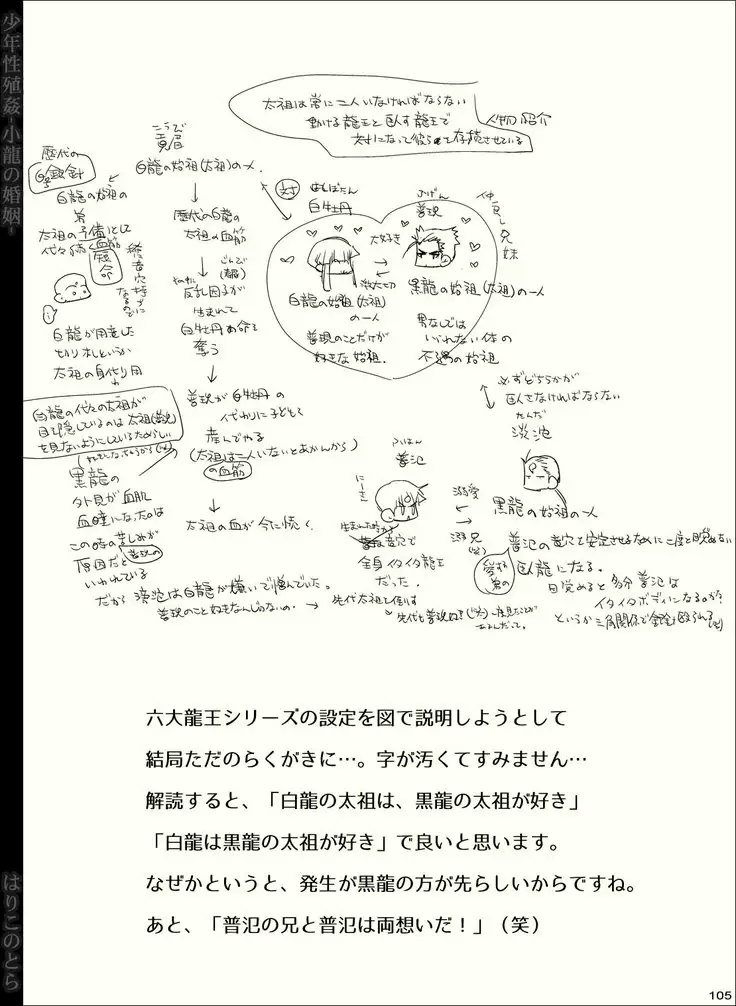 少年性殖姦-小龍の婚姻-
はりこのとら
太祖は常に二人いなければならない
動ける龍王と臥す龍王で
対になって彼らを存続させている
人物紹介
こうび
黄眉
白龍の始祖(太祖)の一人
歴代の白龍の
太祖の血筋
反乱因子が
生まれて
白牡丹の命を
奪う
普現が白牡丹の
代わりに子ども
産んでやる
(太祖は二人いないとあかんから)
の血筋
太祖の血が今に続く
歴代の
白銀針
白龍の始祖の
弟
太祖の予備として
代々続く血筋
短命
白龍が用意した
切り札というか
太祖の身代り用
白龍の代々の太祖が
目を隠しているのは太祖(普現)
を見ないようにしているためらしい
黒龍の
外見が血肌
血瞳になったのは
この時の苦しみが
原因だと
いわれている
対
はくぼたん
白牡丹
白龍の始祖(太祖)
の一人
普現のことだけが
好きな始祖
大好き
激大切
ふげん
普現
黒龍の始祖(太祖)の一人
男なしでは
いられない体の
不遇の始祖
仲良し兄妹
必ずどちらかが
臥さなければならない
たんだ
淡沱
黒龍の始祖の一人
ふはん
普氾
にーさん
溺愛
溺兄
(笑)
全身イタイタ龍王
だった
普氾の竜穴を安定させるために二度と目覚めない
臥龍になる。
目覚めると多分普氾は
イタイタボディになるのか?
だから淡沱は白龍が嫌いで憎んでいた。
普現のこと好きなんじゃないの。
→先代太祖も倒す
六大龍王シリーズの設定を図で説明しようとして
結局ただのらくがきに…。字が汚くてすみません…
解読すると、「白龍の太祖は、黒龍の太祖が好き」
「白龍は黒龍の太祖が好き」で良いと思います。
なぜかというと、発生が黒龍の方が先らしいからですね。
あと、「普氾の兄と普氾は両想いだ!」(笑)
105